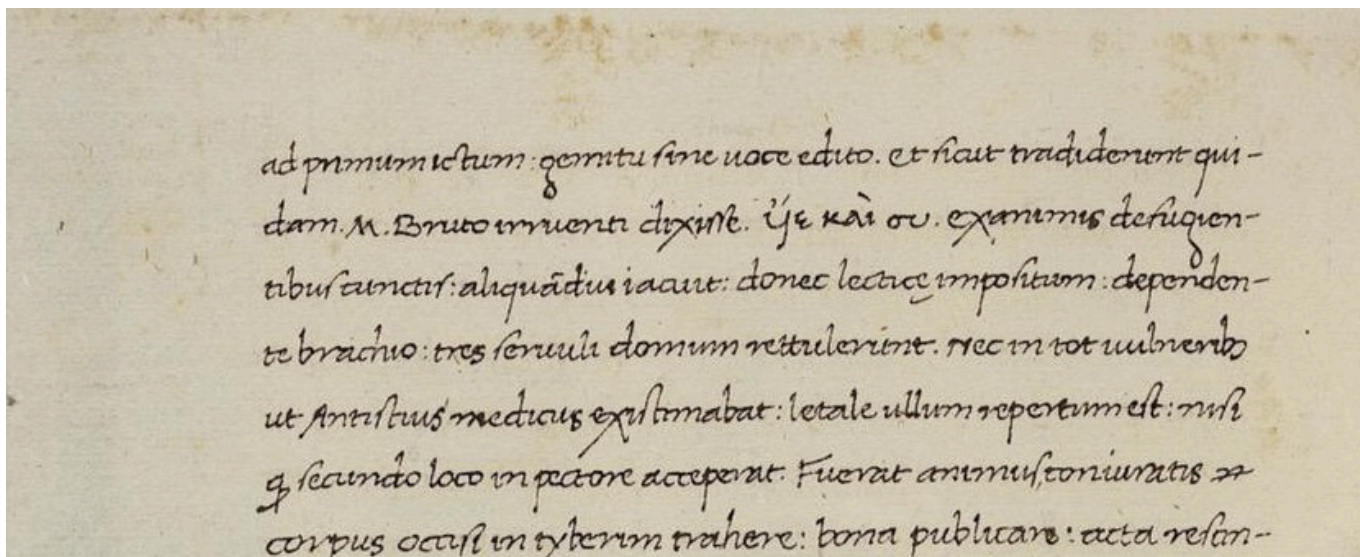 ad primum ictum: gemitu sine uoce edito. et sicut tradiderunt qui-
dam. M. Bruto irruenti dixisse. ὑίε καὶ συ. exanimis defugien-
tibus cunctis: aliquādiu iacuit: donec lecticę impositum: dependen-
te brachio: tres seruuli domum rettulerunt. Nec in tot uulneribꝫ
ut Antistius medicus existimabat: letale ullum repertum est: nisi
ꝙ secundo loco in pectore acceperat. Fuerat animus coniuratis
corpus occisi in tyberim trahere: bona publicare: acta rescin-